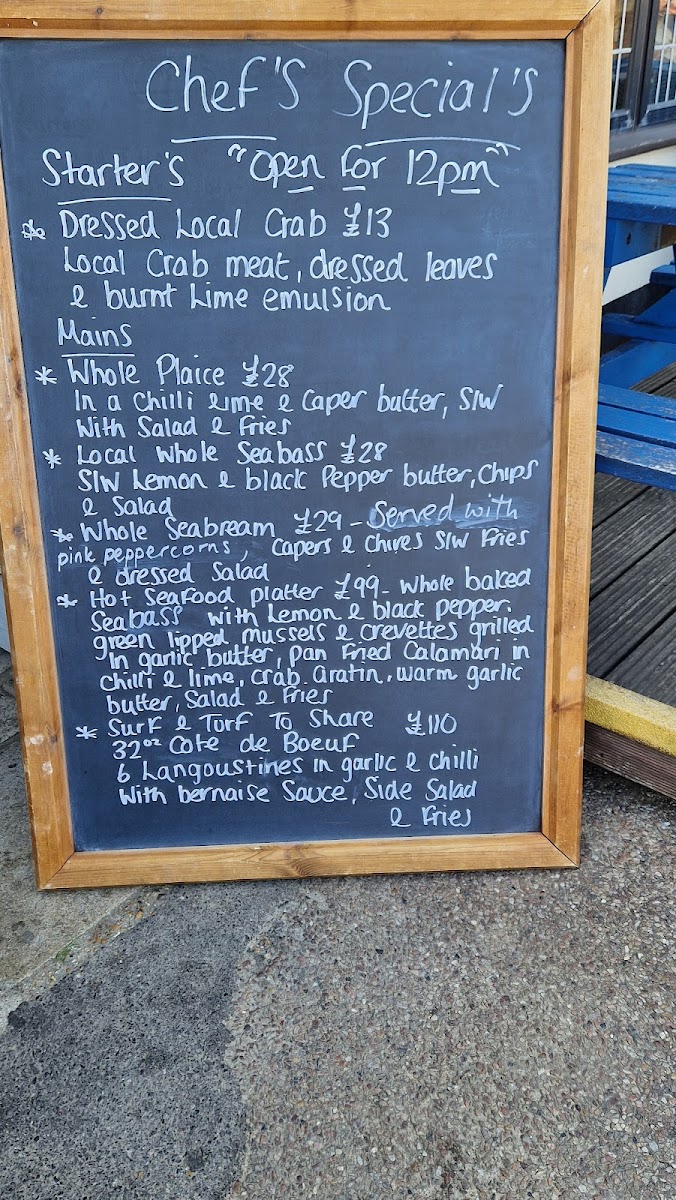 Chef's Special's
Starter's "Open For 12pm"
* Dressed Local Crab £13
Local Crab meat, dressed leaves
& burnt Lime emulsion
Mains
* Whole Plaice £28
In a Chilli Lime & Caper butter, S/W
With Salad & Fries
* Local Whole Seabass £28
S/W Lemon & black Pepper butter, Chips
& Salad
* Whole Seabream £29 - Served with
pink peppercorns, Capers & Chives S/W Fries
& dressed Salad
* Hot Seafood Platter £99 - Whole baked
Seabass with Lemon & black pepper.
green lipped mussels & crevettes grilled
In garlic butter, Pan Fried Calamari in
Chilli & lime, Crab Gratin, warm garlic
butter, Salad & Fries
* Surf & Turf To Share £110
32oz Cote de Boeuf
6 Langoustines in garlic & chilli
With bernaise Sauce, Side Salad
& Fries